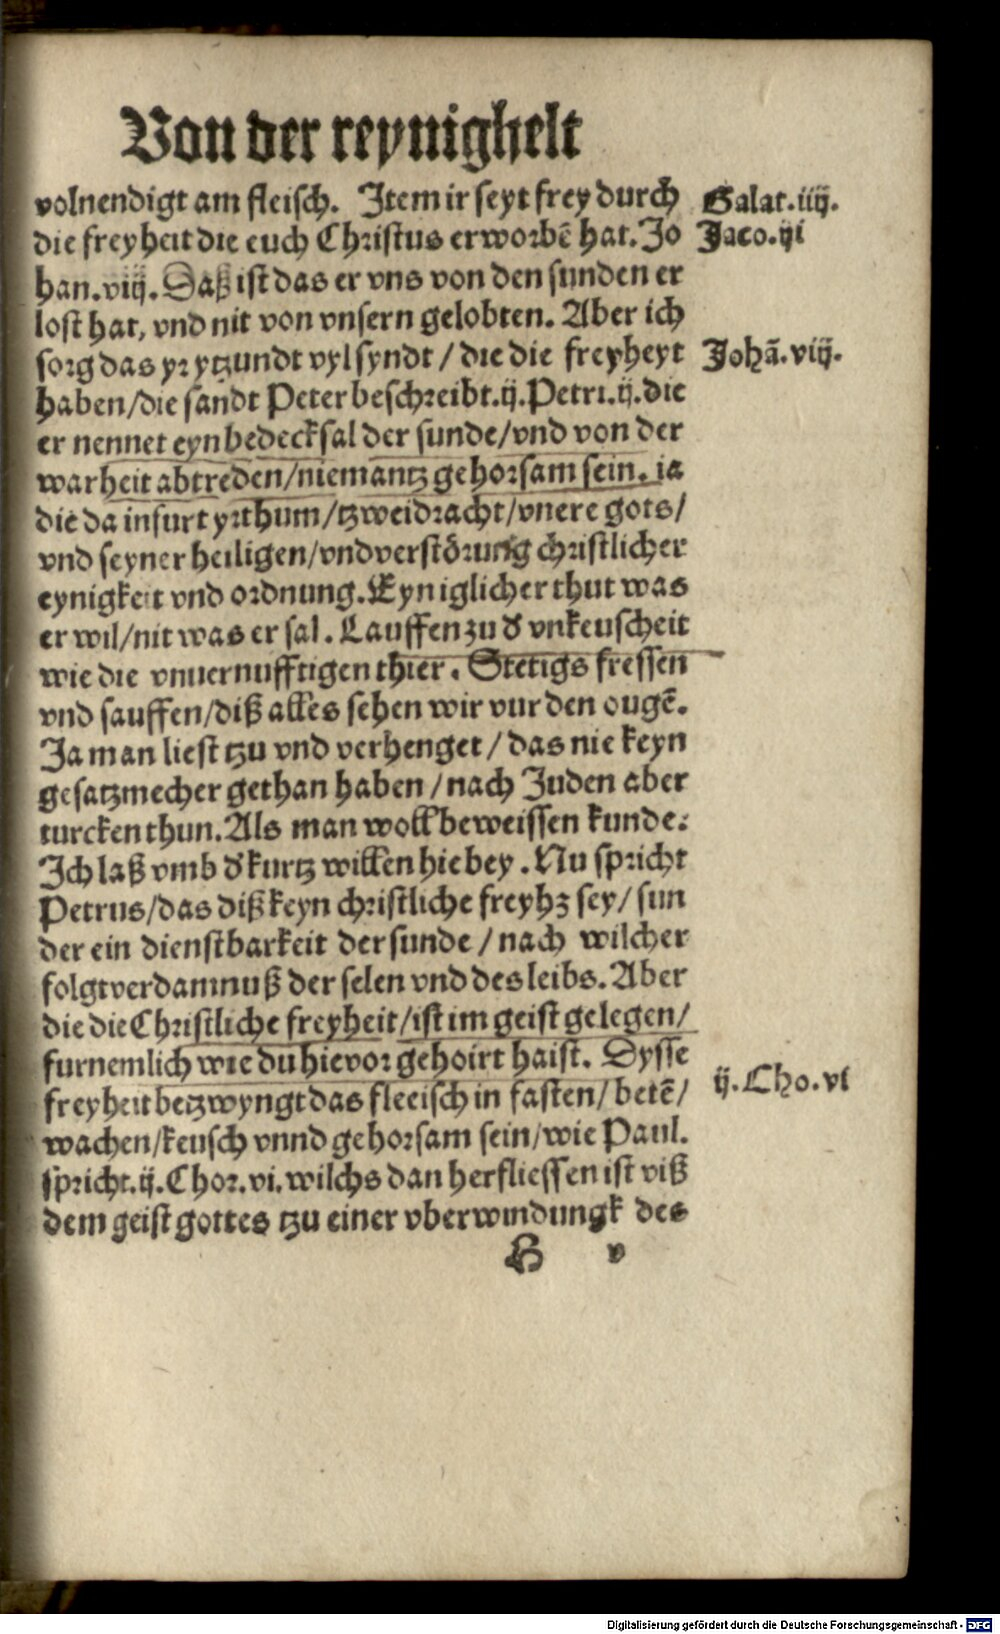 Von der reynigheit
volnendigt am fleisch. Item ir seyt frey durch
Galat.iiij.
die freyheit die euch Christus erworbē hat. Jo
Jaco.ij
han.viij. Daß ist das er vns von den sunden er
lost hat, vnd nit von vnsern gelobten. Aber ich
sorg das yr ytzundt vyl syndt / die die freyheyt
Johā.viij.
haben/die sandt Peter beschreibt.ij.Petri.ij.die
er nennet eyn bedecksal der sunde/vnd von der
warheit abtreden/niemantz gehorsam sein. ia
die da infurt yrthum/tzweidracht/vnere gots/
vnd seyner heiligen/vnd verstörung christlicher
eynigkeit vnd ordnung. Eyn iglicher thut was
er wil/nit was er sal. Lauffen zu d̕ vnkeuscheit
wie die vnuernufftigen thier. Stetigs fressen
vnd sauffen/diß alles sehen wir vur den ougē.
Ja man liest tzu vnd verhenget / das nie keyn
gesatzmecher gethan haben / nach Juden aber
turcken thun. Als man woll beweissen kunde.
Ich laß vmb d̕ kurtz willen hie bey. Nu spricht
Petrus/das diß keyn christliche freyhꝫ sey/ sun
der ein dienstbarkeit der sunde / nach wilcher
folgt verdamnuß der selen vnd des leibs. Aber
die die Christliche freyheit/ist im geist gelegen/
furnemlich wie du hievor gehoirt haist. Dysse
freyheit betzwyngt das fleeisch in fasten/ betē/
ij.Cho.vi
wachen/keusch vnnd gehorsam sein/wie Paul.
spricht.ij.Chor.vi.wilchs dan herfliessen ist viß
dem geist gottes tzu einer vberwindungk des
H v
Digitalisierung gefördert durch die Deutsche Forschungsgemeinschaft - DFG